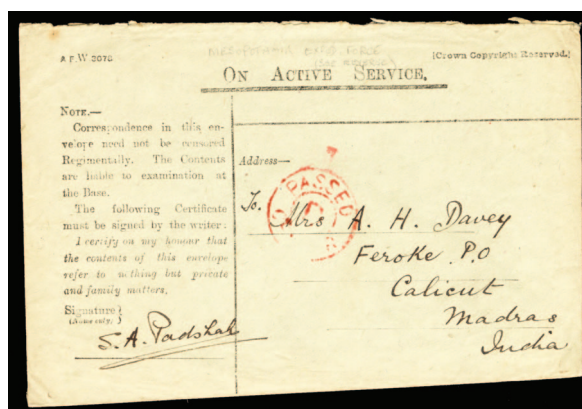 A F.W.3078
MESOPOTAMIA EXPED. FORCE
(SEE REVERSE)
[Crown Copyright Reserved.]
ON ACTIVE SERVICE.
NOTE.—
Correspondence in this en-
velope need not be censored
Regimentally. The Contents
are liable to examination at
the Base.
The following Certificate
must be signed by the writer:
I certify on my honour that
the contents of this envelope
refer to nothing but private
and family matters.
Signature}
(Name only.)
S. A. Padshah
Address—
PASSED
To. Mrs A. H. Davey
Feroke. P.O
Calicut
Madras
India